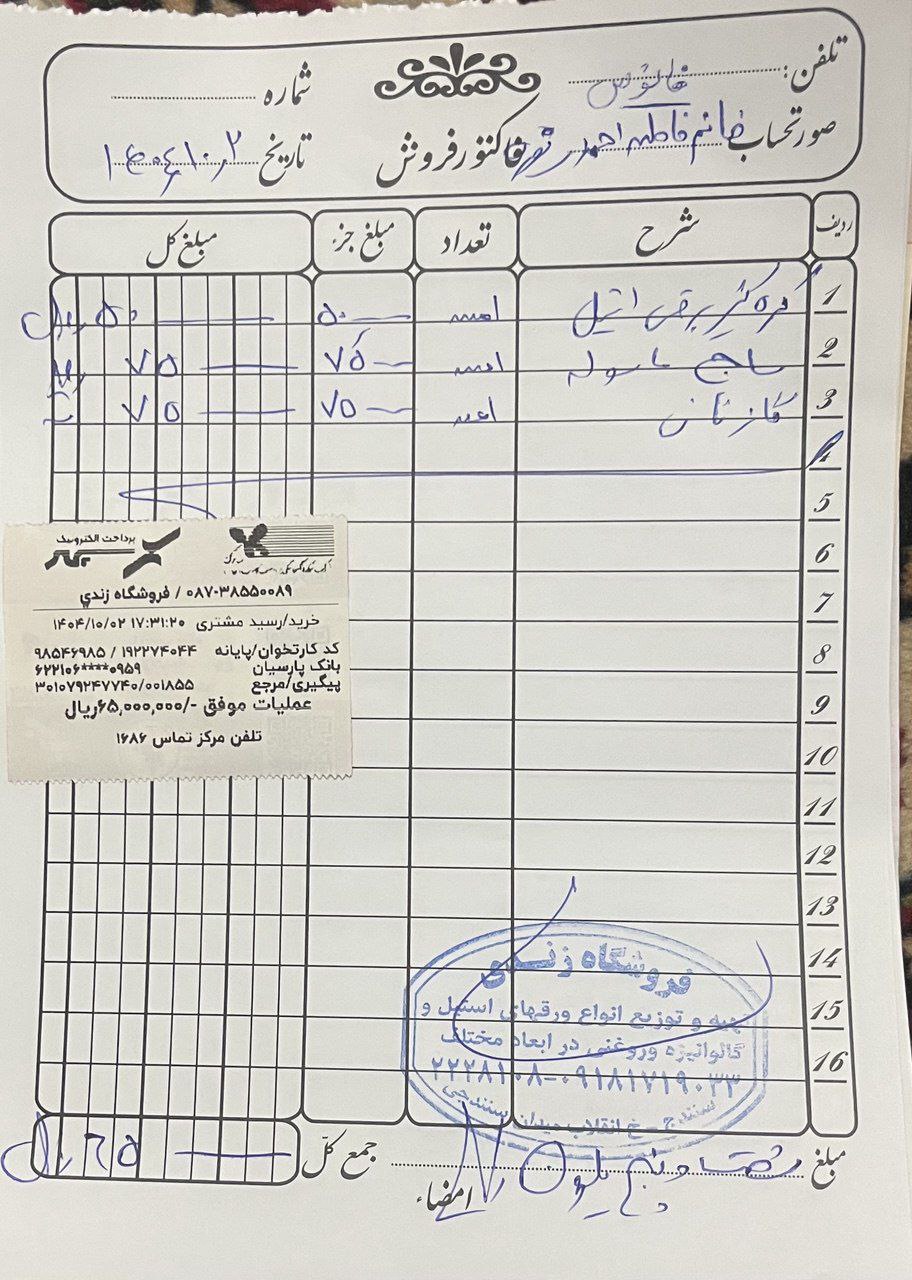 تلفن:
شماره
صورتحساب خانم فاطمه احمدی
فاکتور فروش
تاریخ ۱۴۰۴٫۱۰٫۲
ردیف شرح تعداد مبلغ جزء مبلغ کل
1 کره گیر برقی استیل ۵۰— ۵۰ — ریال
2 ساج ۷۵— ۷۵ —
3 ۷۵— ۷۵ —
4
5
6
7
8
9
10
11
12
13
14
15
16
پرداخت الکترونیک
۰۸۷-۳۸۵۵۰۰۸۹ / فروشگاه زندي
خرید/رسید مشتری ۱۴۰۴/۱۰/۰۲ ۱۷:۳۱:۲۰
کد کارتخوان/پایانه ۱۹۲۲۷۴۰۴۴ / ۹۸۵۴۶۹۸۵
بانک پارسیان ۶۲۲۱۰۶****۰۹۵۹
پیگیری/مرجع ۳۰۱۰۷۹۲۴۷۷۴۰/۰۰۱۸۵۵
عملیات موفق -/۶۵,۰۰۰,۰۰۰ریال
تلفن مرکز تماس ۱۶۸۶
فروشگاه زندی
تهیه و توزیع انواع ورقهای استیل و
گالوانیزه وروغنی در ابعاد مختلف
۲۲۲۸۱۰۸-۰۹۱۸۱۷۱۹۰۳۳
سنندج - خ انقلاب میدان سنندجی
مبلغ شصت و پنج میلیون ریال
جمع کل ۶۵ — ریال
امضاء